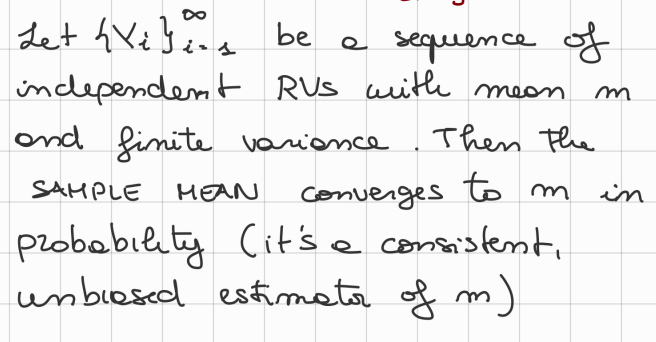 Let {Yi}∞i=1 be a sequence of
independent RVs with mean m
and finite variance. Then the
SAMPLE MEAN converges to m in
probability (it's a consistent,
unbiased estimator of m)